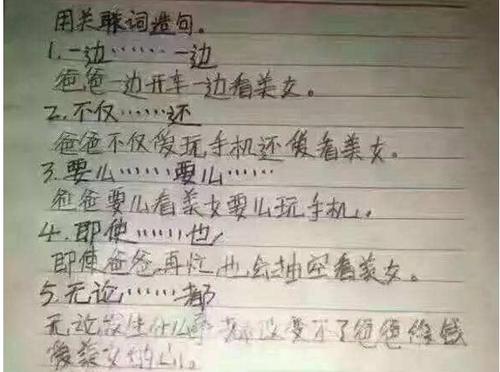 用关联词造句。
1.一边……一边
爸爸一边开车一边看美女。
2.不仅……还
爸爸不仅爱玩手机还爱看美女。
3.要么……要么……
爸爸要么看美女要么玩手机。
4.即使……也
即使爸爸再忙也会抽空看美女。
5.无论……都
无论发生什么事都改变不了爸爸
美女的心。